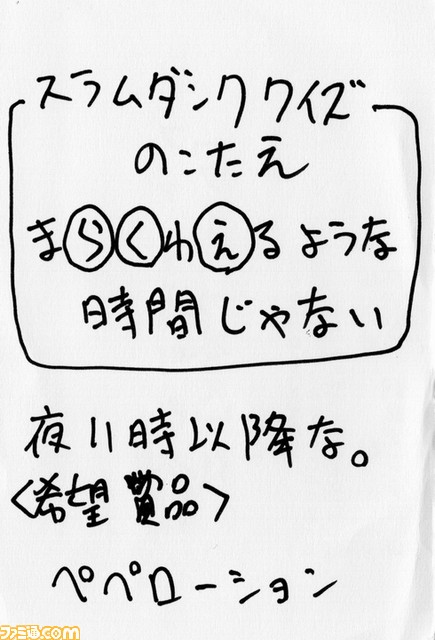 スラムダンククイズ
のこたえ
まらくわえるような
時間じゃない
夜11時以降な。
<希望賞品>
ペペローション
ファミ通.com